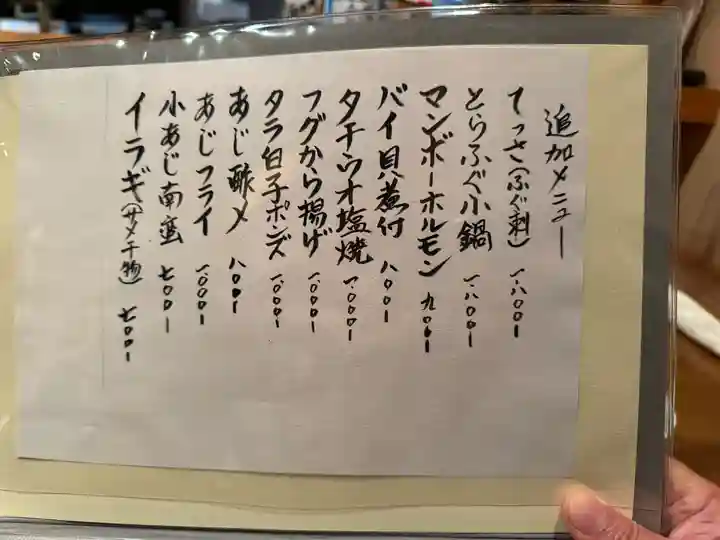 追加メニュー
てっさ(ふぐ刺) 一.八〇〇ー
とらふぐ小鍋 一.八〇〇ー
マンボーホルモン 九〇〇ー
バイ貝煮付 八〇〇ー
タチウオ塩焼 一.〇〇〇ー
フグから揚げ 一.〇〇〇ー
タラ白子ポンズ 一.〇〇〇ー
あじ酢〆 八〇〇ー
あじフライ 一.〇〇〇ー
小あじ南蛮 七〇〇ー
イラギ(サメ干物) 七〇〇ー